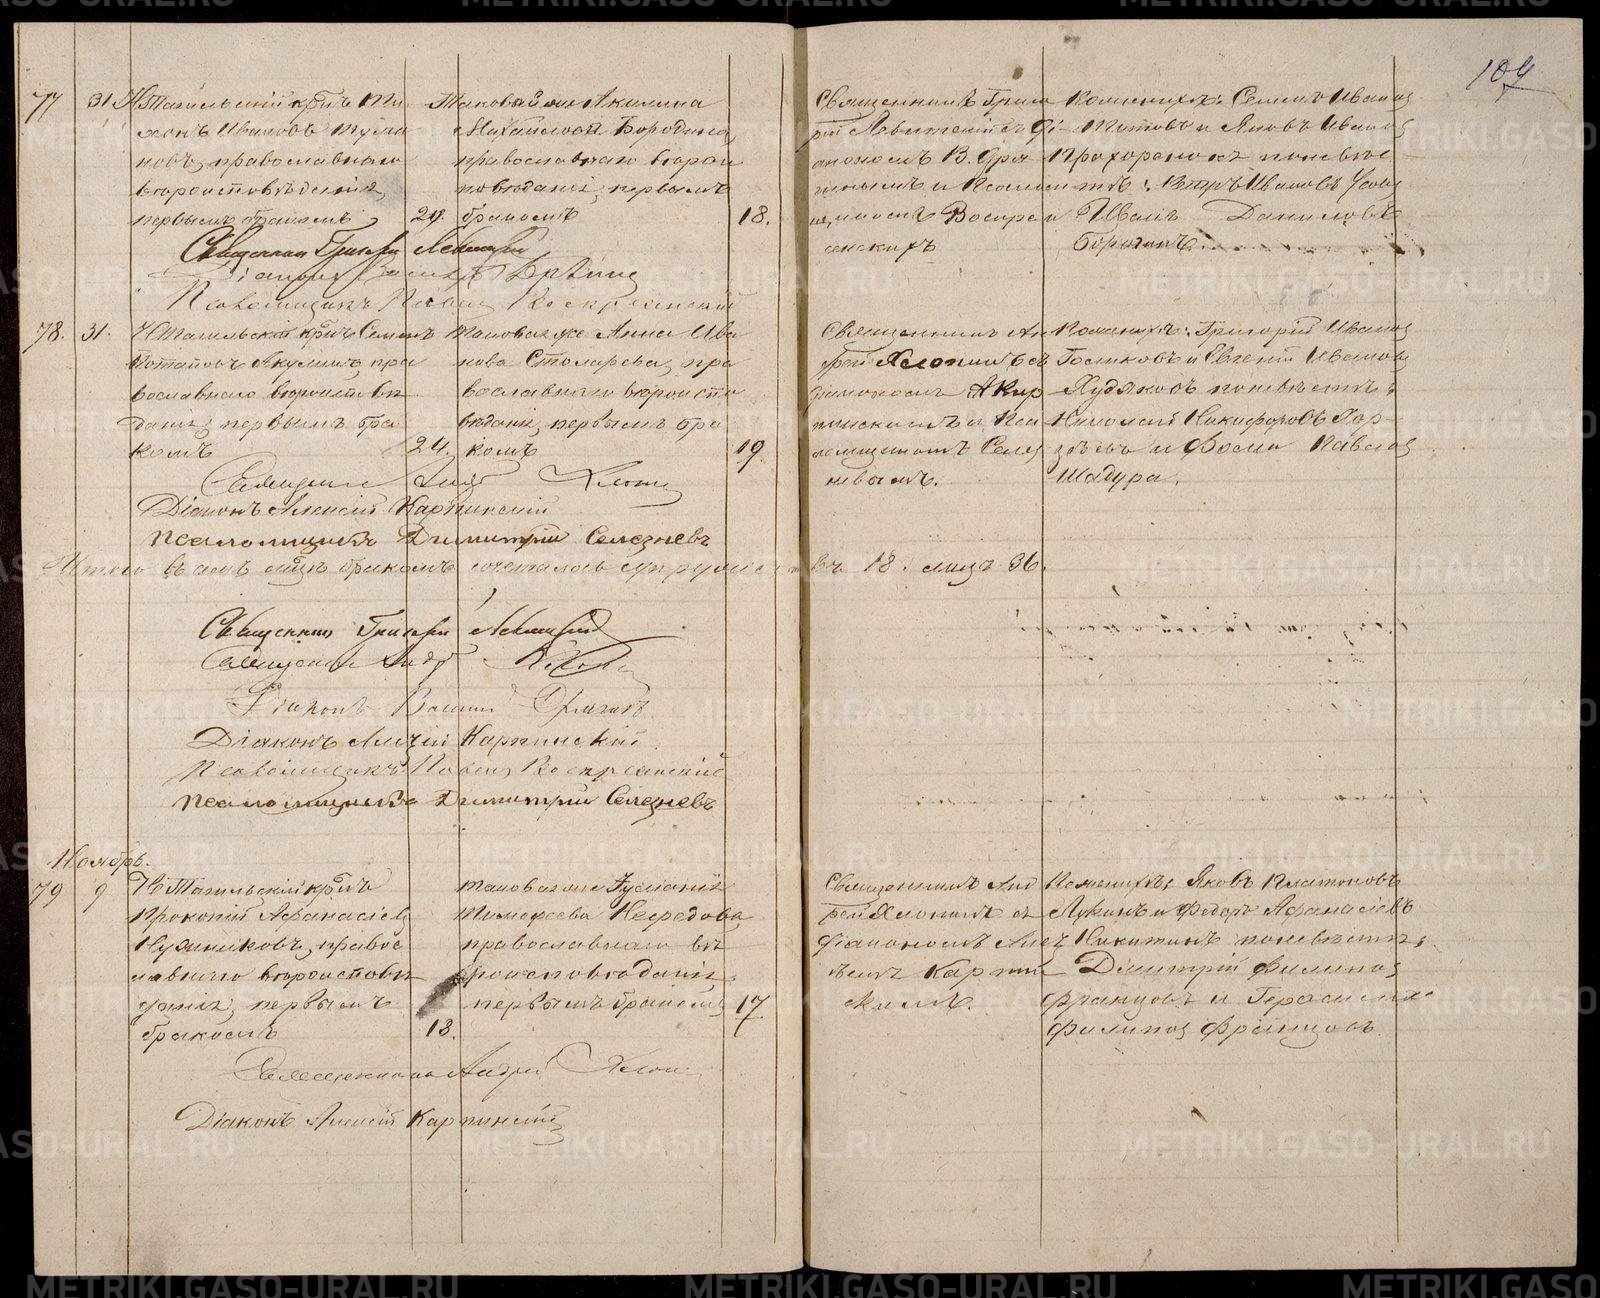 104
77 31 Н.Тагильскій кр-нъ Ти-
хонъ Ивановъ
новъ, православнаго
вѣроисповѣданія,
первымъ бракомъ 24.
Таковая же Акилина
Михайлова Бородина,
православнаго вѣроис
повѣданія, первымъ
бракомъ 18.
Священникъ Григо
рій Левитскій съ Ді-
акономъ В.
гинымъ и Псаломщ
икомъ Воскре
сенскихъ
По женихѣ: Семенъ Иванов
Титовъ и Яковъ Иванов
Прохоровъ по невѣс
тѣ: Петръ Ивановъ
Иванъ Даниловъ
Священникъ Григорій Левитскій
Діаконъ Василій
Псаломщикъ Павелъ Воскресенскій
78. 31. Н.Тагильскій кр-нъ Семенъ
Потаповъ Якушинъ, пра
вославнаго вѣроисповѣ
данія, первымъ бра
комъ 24.
Таковая же Анна Ива
нова Столярева, пра
вославнаго вѣроиспо
вѣданія, первымъ бра
комъ 19
Священникъ Ан
дрей Хлопинъ съ
діакономъ А Кар
пинскимъ и Пса
ломщикомъ Селез
невымъ.
По женихѣ: Григорій Иванов
Голиковъ и Евгеній Иванов
Худяковъ по невѣстѣ:
Николай Никифоровъ
и Фома Павлов
Шадура.
Священникъ Андр Хлопин
Діаконъ Алексій Карпинскій
Псаломщикъ Димитрій Селезневъ
Итого въ семъ м-цѣ бракомъ сочеталось супружествъ 18. лицъ 36.
Священникъ Григорій Левитскій
Священникъ Андр Хлопин
Діаконъ Василій
Діаконъ Алексій Карпинскій
Псаломщикъ Павелъ Воскресенскій
Псаломщикъ Димитрій Селезневъ
Ноябрь.
79 9 Н Тагильскій кр-нъ
Прокопій Афанасіев
православ
наго вѣроисповѣ
данія, первымъ
бракомъ 18.
таковая же
Тимофеева Несредова,
православнаго вѣ
роисповѣданія
первымъ бракомъ 17
Священникъ Анд
рей Хлопинъ съ
діакономъ Алек
сѣемъ Карпин
скимъ.
По женихѣ: Яковъ Платоновъ
Лукинъ и Федоръ Афанасіевъ
Никитинъ по невѣстѣ:
Димитрій Филипов
Францовъ и Герасимъ
Филипов Францовъ
Священникъ Андрей Хлопин
Діаконъ Алексій Карпинскій
METRIKI.GASO-URAL.RU